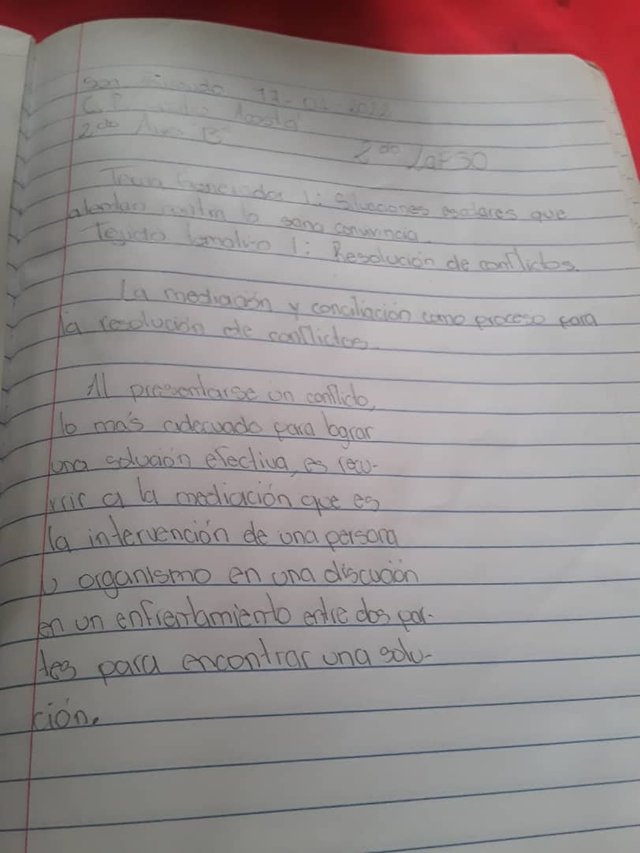 San 17- 2022
C.P Acosta
2do Año "B"
2do Lapso
Tema Generador 1: Situaciones escolares que
la sana convivencia.
Tejido temático 1: Resolución de conflictos.
La mediación y conciliación como proceso para
la resolución de conflictos.
Al presentarse un conflicto,
lo más adecuado para lograr
una solución efectiva, es recu-
rrir a la mediación que es
la intervención de una persona
u organismo en una discución
en un enfrentamiento entre dos par-
tes para encontrar una solu-
ción.